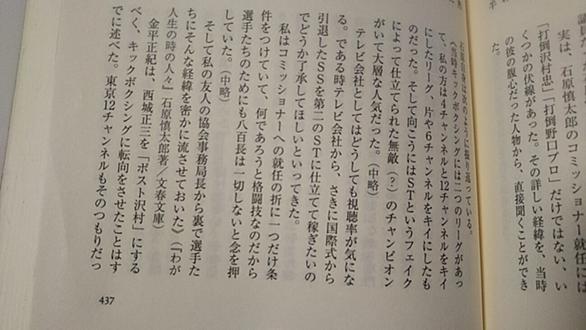 実は、石原慎太郎のコミッショナー就任には
「打倒沢村忠」「打倒野口プロ」だけではない、い
くつかの伏線があった。その詳しい経緯を、当時
の彼の腹心だった人物から、直接聞くことができ
た。
石原慎太郎自身は次のように振り返っている。
〈当時キックボクシングには二つのリーグがあっ
て、私の方は4チャンネルと12チャンネルをキイ
にしたリーグ、片や6チャンネルをキイにしたも
のだった。そして向こうにはSTというフェイク
によって仕立てられた無敵(?)のチャンピオン
がいて大層な人気だった。(中略)
テレビ会社としてはどうしても視聴率が気にな
る。である時テレビ会社から、さきに国際式から
引退したSSを第二のSTに仕立てて稼ぎたいの
でどうか了承してほしいといってきた。
私はコミッショナーへの就任の折に一つだけ条
件をつけていて、何であろうと格闘技なのだから
選手たちのためにも八百長は一切しないと念を押
していた。(中略)
そして私の友人の協会事務局長から裏で選手た
ちにそんな経緯を密かに流させておいた〉(『わが
人生の時の人々』石原慎太郎著/文春文庫)
金平正紀は、西城正三を「ポスト沢村」にする
べく、キックボクシングに転向をさせたことはす
でに述べた。東京12チャンネルもそのつもりだっ
437